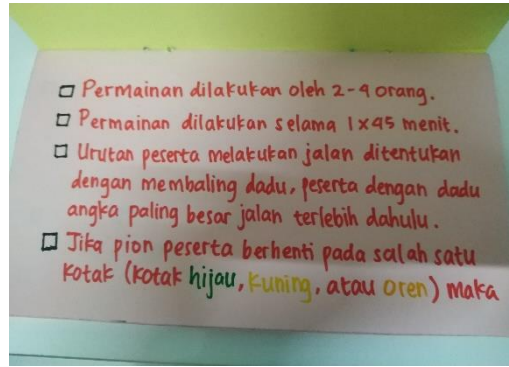 □ Permainan dilakukan oleh 2-4 orang.
□ Permainan dilakukan selama 1x45 menit.
□ Urutan peserta melakukan jalan ditentukan
dengan membaling dadu, peserta dengan dadu
angka paling besar jalan terlebih dahulu.
□ Jika pion peserta berhenti pada salah satu
kotak (kotak hijau, kuning, atau oren) maka